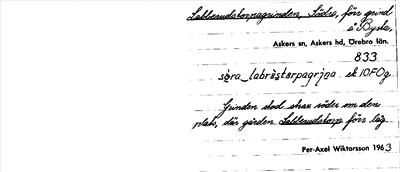 Labberudstorpagrinden, Södra, förr grind
å Bysta,
Askers sn, Askers hd, Örebro län.
833
sö̀ra_labrústərpagrị́na sk 10FOg
Grinden stod strax söder om den
plats, där gården Labberudstorp förr låg.
Per-Axel Wiktorsson 1963